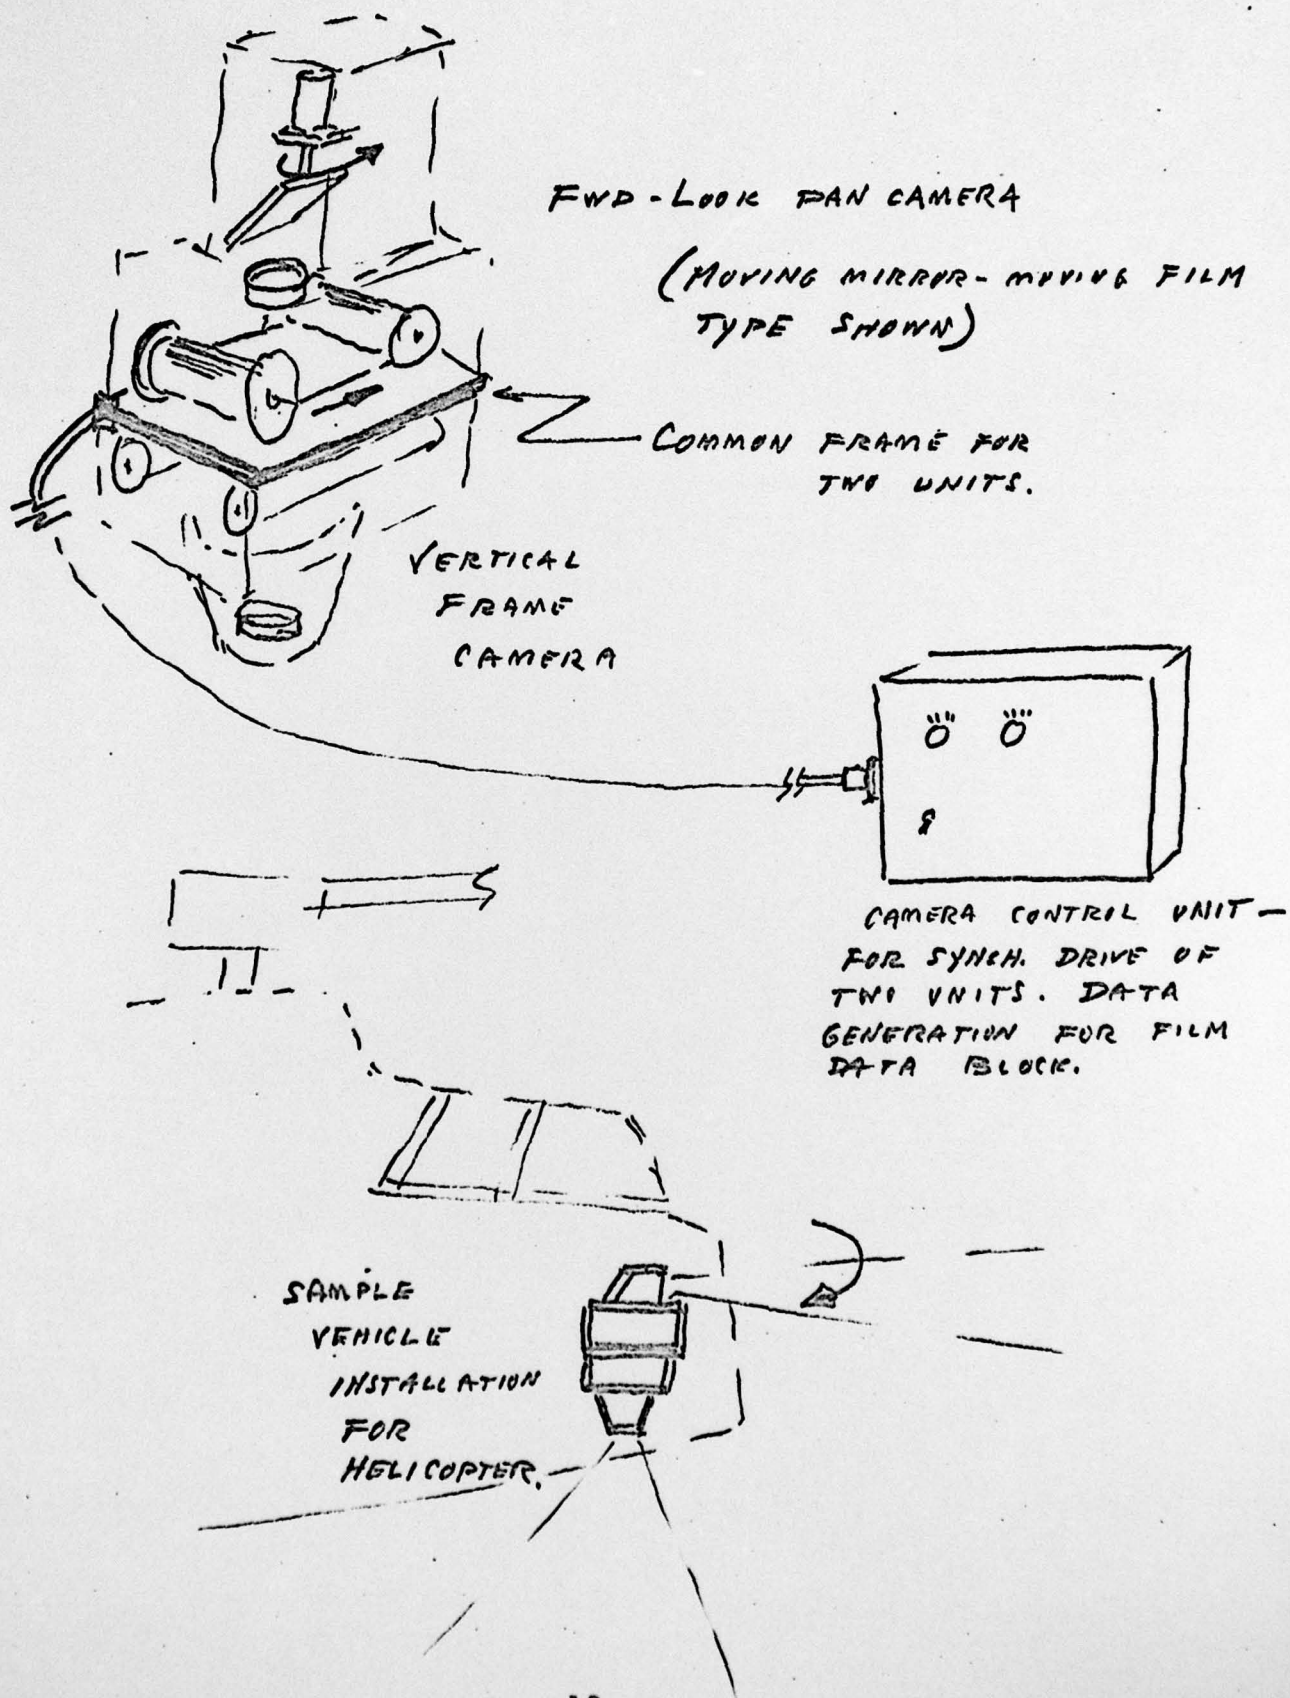 FWD-LOOK PAN CAMERA
(MOVING MIRROR-MOVING FILM
TYPE SHOWN)
COMMON FRAME FOR
TWO UNITS.
VERTICAL
FRAME
CAMERA
CAMERA CONTROL UNIT-
FOR SYNCH. DRIVE OF
TWO UNITS. DATA
GENERATION FOR FILM
DATA BLOCK.
SAMPLE
VEHICLE
INSTALLATION
FOR
HELICOPTER.